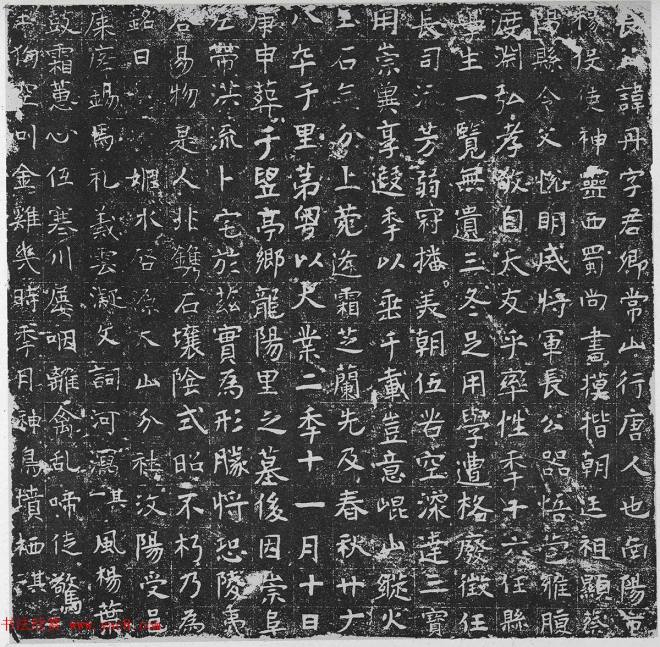 諱丹字君卿常山行唐人也南陽
侯使神靈西蜀尚書摸揩朝廷祖顯蔡
陽縣令父悅明威將軍長公器悟苞雅腹
度淵弘孝敬自天友乎率性季十六任縣
學生一覽無遺三冬足用學遭格廢徵任
長司流芳弱冠播美朝伍岩空深達三寶
用崇冀享遐季以垂千載豈意崐山縱火
玉石無分上菀逢霜芝蘭先及春秋廿六
八卒于里第粵以大業二季十一月十日
庚申葬于豎亭鄉龍陽里之墓後因崇阜
左帶洪流卜宅於茲實為形勝將恐陵夷
谷易物是人非鐫石壤陰式昭不朽乃為
銘曰 媯水谷深大山分社汶陽受邑
稟序錫馬礼義雲凝文詞河瀉其風楊葉
鼓霜蕙心伍寒川屢咽離禽乱啼徒驚
空叫金雞幾時季月神鳥墳栖淇